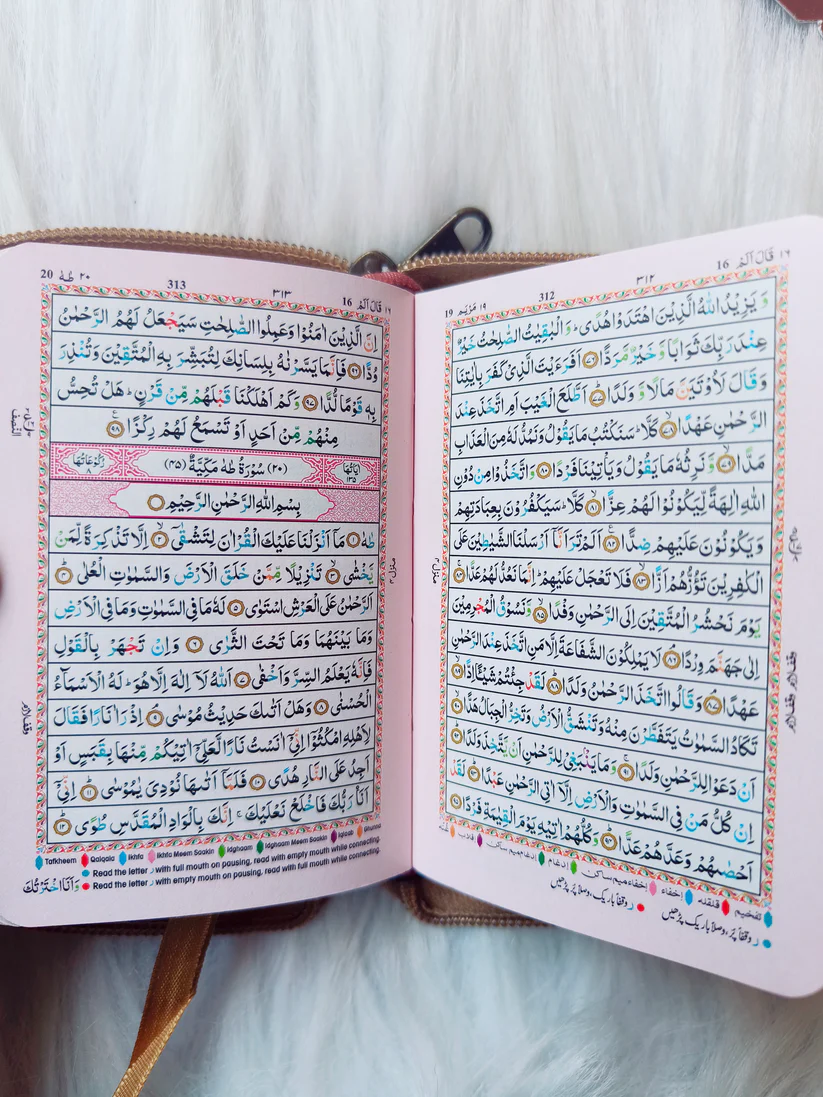 ١٦ قَالَ اَلَمْ 16
٣١٢
312
١٩ مَرْيَم 19
وَ يَزِيْدُ اللّٰهُ الَّذِيْنَ اهْتَدَوْا هُدًى ؕ وَ الْبٰقِيٰتُ الصّٰلِحٰتُ خَيْرٌ
عِنْدَ رَبِّكَ ثَوَابًا وَّ خَيْرٌ مَّرَدًّا ۝٧٦ اَفَرَءَيْتَ الَّذِيْ كَفَرَ بِاٰيٰتِنَا
وَ قَالَ لَاُوْتَيَنَّ مَالًا وَّ وَلَدًا ۝٧٧ اَطَّلَعَ الْغَيْبَ اَمِ اتَّخَذَ عِنْدَ
الرَّحْمٰنِ عَهْدًا ۝٧٨ كَلَّا ؕ سَنَكْتُبُ مَا يَقُوْلُ وَ نَمُدُّ لَهٗ مِنَ الْعَذَابِ
مَدًّا ۝٧٩ وَّ نَرِثُهٗ مَا يَقُوْلُ وَ يَاْتِيْنَا فَرْدًا ۝٨٠ وَ اتَّخَذُوْا مِنْ دُوْنِ
اللّٰهِ اٰلِهَةً لِّيَكُوْنُوْا لَهُمْ عِزًّا ۝٨١ كَلَّا ؕ سَيَكْفُرُوْنَ بِعِبَادَتِهِمْ
وَ يَكُوْنُوْنَ عَلَيْهِمْ ضِدًّا ۝٨٢ اَلَمْ تَرَ اَنَّاۤ اَرْسَلْنَا الشَّيٰطِيْنَ عَلَى
الْكٰفِرِيْنَ تَؤُزُّهُمْ اَزًّا ۝٨٣ فَلَا تَعْجَلْ عَلَيْهِمْ ؕ اِنَّمَا نَعُدُّ لَهُمْ عَدًّا ۝٨٤
يَوْمَ نَحْشُرُ الْمُتَّقِيْنَ اِلَى الرَّحْمٰنِ وَفْدًا ۝٨٥ وَّ نَسُوْقُ الْمُجْرِمِيْنَ
اِلٰى جَهَنَّمَ وِرْدًا ۝٨٦ لَا يَمْلِكُوْنَ الشَّفَاعَةَ اِلَّا مَنِ اتَّخَذَ عِنْدَ الرَّحْمٰنِ
عَهْدًا ۝٨٧ وَ قَالُوا اتَّخَذَ الرَّحْمٰنُ وَلَدًا ۝٨٨ لَقَدْ جِئْتُمْ شَيْـًٔا اِدًّا ۝٨٩
تَكَادُ السَّمٰوٰتُ يَتَفَطَّرْنَ مِنْهُ وَ تَنْشَقُّ الْاَرْضُ وَ تَخِرُّ الْجِبَالُ هَدًّا ۝٩٠
اَنْ دَعَوْا لِلرَّحْمٰنِ وَلَدًا ۝٩١ وَ مَا يَنْۢبَغِيْ لِلرَّحْمٰنِ اَنْ يَّتَّخِذَ وَلَدًا ۝٩٢
اِنْ كُلُّ مَنْ فِي السَّمٰوٰتِ وَ الْاَرْضِ اِلَّاۤ اٰتِي الرَّحْمٰنِ عَبْدًا ۝٩٣ لَقَدْ
اَحْصٰىهُمْ وَ عَدَّهُمْ عَدًّا ۝٩٤ وَ كُلُّهُمْ اٰتِيْهِ يَوْمَ الْقِيٰمَةِ فَرْدًا ۝٩٥
تفخیم قلقلہ اخفاء اخفاء میم ساکنت ادغام ادغام میم ساکنت قلاب غنہ
ر وقفاً پُر، وصلاً باریک پڑھیں ر وقفاً باریک، وصلاً پُر پڑھیں
١٦ قَالَ اَلَمْ 16
٣١٣
313
٢٠ طٰهٰ 20
اِنَّ الَّذِيْنَ اٰمَنُوْا وَ عَمِلُوا الصّٰلِحٰتِ سَيَجْعَلُ لَهُمُ الرَّحْمٰنُ
وُدًّا ۝٩٦ فَاِنَّمَا يَسَّرْنٰهُ بِلِسَانِكَ لِتُبَشِّرَ بِهِ الْمُتَّقِيْنَ وَ تُنْذِرَ
بِهٖ قَوْمًا لُّدًّا ۝٩٧ وَ كَمْ اَهْلَكْنَا قَبْلَهُمْ مِّنْ قَرْنٍ ؕ هَلْ تُحِسُّ
مِنْهُمْ مِّنْ اَحَدٍ اَوْ تَسْمَعُ لَهُمْ رِكْزًا ۝٩٨
اٰيَاتُهَا ١٣٥ (٢٠) سُوْرَةُ طٰهٰ مَكِّيَّةٌ (٤٥) رُكُوْعَاتُهَا ٨
بِسْمِ اللّٰهِ الرَّحْمٰنِ الرَّحِيْمِ
طٰهٰ ۝١ مَاۤ اَنْزَلْنَا عَلَيْكَ الْقُرْاٰنَ لِتَشْقٰۤى ۝٢ اِلَّا تَذْكِرَةً لِّمَنْ
يَّخْشٰى ۝٣ تَنْزِيْلًا مِّمَّنْ خَلَقَ الْاَرْضَ وَ السَّمٰوٰتِ الْعُلٰى ۝٤
اَلرَّحْمٰنُ عَلَى الْعَرْشِ اسْتَوٰى ۝٥ لَهٗ مَا فِي السَّمٰوٰتِ وَ مَا فِي الْاَرْضِ
وَ مَا بَيْنَهُمَا وَ مَا تَحْتَ الثَّرٰى ۝٦ وَ اِنْ تَجْهَرْ بِالْقَوْلِ
فَاِنَّهٗ يَعْلَمُ السِّرَّ وَ اَخْفٰى ۝٧ اَللّٰهُ لَاۤ اِلٰهَ اِلَّا هُوَ ؕ لَهُ الْاَسْمَآءُ
الْحُسْنٰى ۝٨ وَ هَلْ اَتٰىكَ حَدِيْثُ مُوْسٰى ۝٩ اِذْ رَاٰ نَارًا فَقَالَ
لِاَهْلِهِ امْكُثُوْۤا اِنِّيْۤ اٰنَسْتُ نَارًا لَّعَلِّيْۤ اٰتِيْكُمْ مِّنْهَا بِقَبَسٍ اَوْ
اَجِدُ عَلَى النَّارِ هُدًى ۝١٠ فَلَمَّاۤ اَتٰىهَا نُوْدِيَ يٰمُوْسٰى ۝١١ اِنِّيْۤ
اَنَا رَبُّكَ فَاخْلَعْ نَعْلَيْكَ ۚ اِنَّكَ بِالْوَادِ الْمُقَدَّسِ طُوًى ۝١٢
Tafkheem Qalqala Ikhfa Ikhfa Meem Saakin Idghaam Idghaam Meem Saakin Iqlaab Ghunna
Read the letter ر with full mouth on pausing, read with empty mouth while connecting.
Read the letter ر with empty mouth on pausing, read with full mouth while connecting.
وَ اَنَا اخْتَرْتُكَ